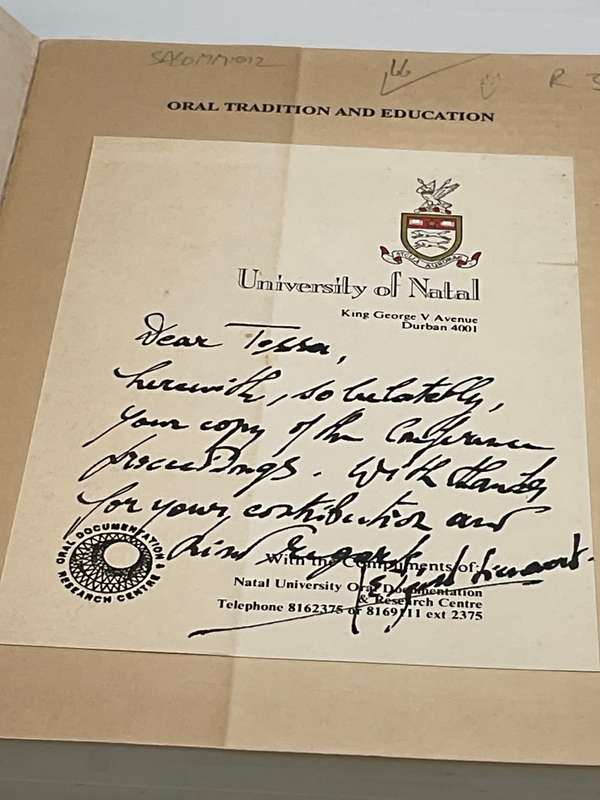 R
ORAL TRADITION AND EDUCATION
STELLA AURORAE
University of Natal
King George V Avenue
Durban 4001
Dear Tessa,
herewith, so belatedly,
your copy of the Conference
proceedings. With thanks
for your contribution and
kind regards
ORAL DOCUMENTATION &
RESEARCH CENTRE
With the Compliments of:
Natal University Oral Documentation
& Research Centre
Telephone 8162375 or 8169111 ext 2375